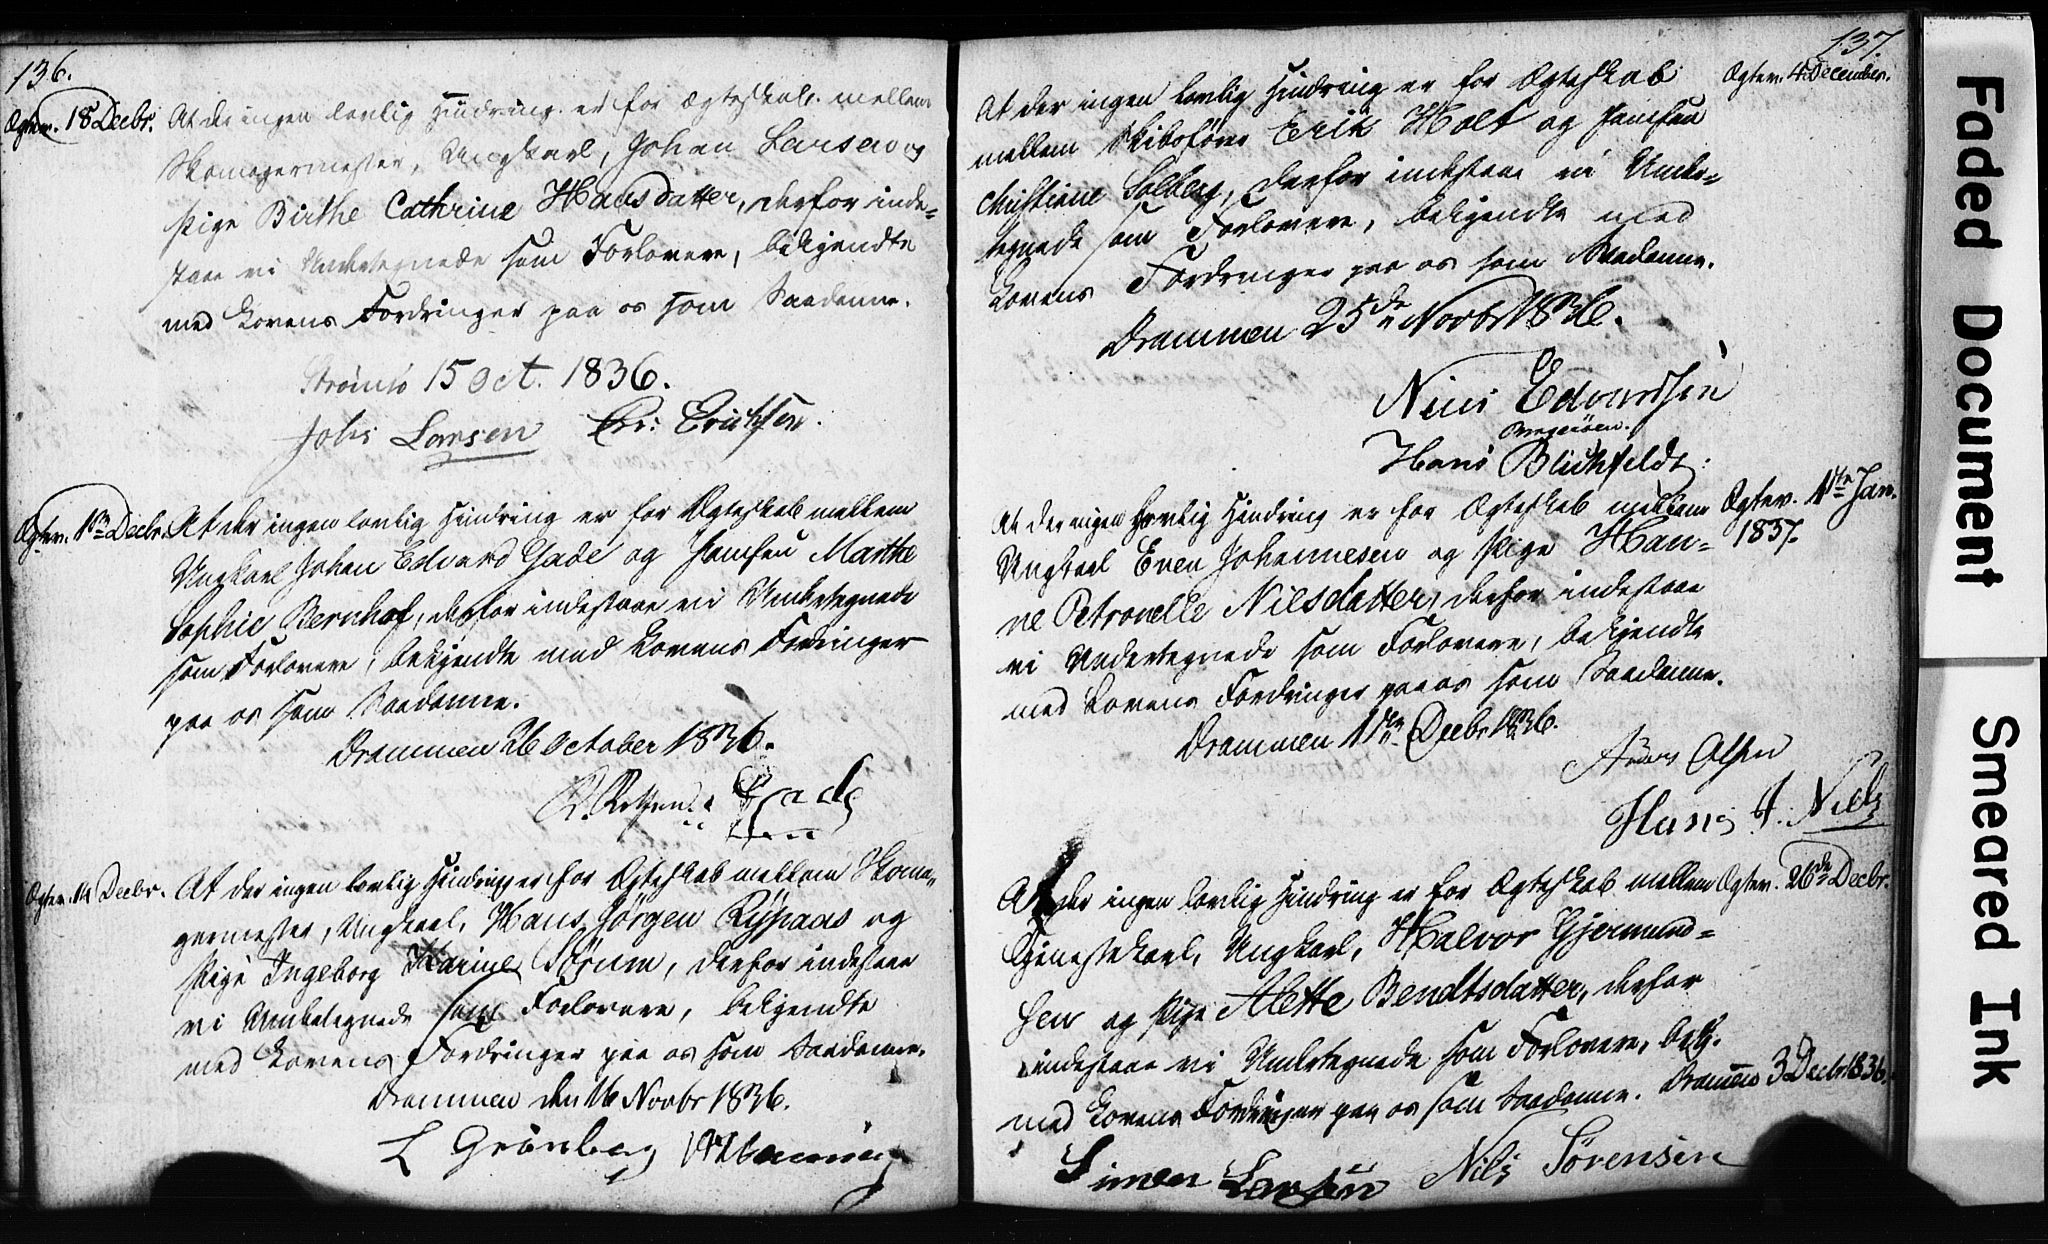 136.
Ægtev. 18 Decbr.
At der ingen lovlig Hindring er for Ægteskab mellem
Skomagermester, Ungkarl, Johan Larsen og
Pige Birthe Cathrine Hansdatter, derfor inde-
staae vi Undertegnede som Forlovere, bekjendte
med Lovens Fordringer paa os som Saadanne.
Strømsø 15 Oct. 1836.
Johs Larsen Chr: Erichsen.
Ægtev. 1ste Decbr.
At der ingen lovlig Hindring er for Ægteskab mellem
Ungkarl Johan Edvard Gade og Jomfru Marthe
Sophie Bernhof, derfor indestaae vi Undertegnede
som Forlovere, bekjendte med Lovens Fordringer
paa os som Saadanne.
Drammen 26 October 1836.
Gade
Ægtev. 11 Decbr.
At der ingen lovlig Hindring er for Ægteskab mellem Skoma-
germester, Ungkarl, Hans Jørgen Ryspaas og
Pige Ingeborg Karine Sørum, derfor indestaae
vi Undertegnede som Forlovere, bekjendte
med Lovens Fordringer paa os som Saadanne.
Drammen den 16 Novbr 1836.
L Grönberg
137.
Ægtev. 4 December.
At der ingen lovlig Hindring er for Ægteskab
mellem Skibsfører Erik Holt og Jomfru
Christiane Solberg, derfor indestaae vi Under-
tegnede som Forlovere, bekjendte med
Lovens Fordringer paa os som Saadanne.
Drammen 25de Novbr 1836.
Niels Edvardsen
Bragerøen.
Hans Blichfeldt.
Ægtev. 1ste Jan.
1837.
At der ingen lovlig Hindring er for Ægteskab mellem
Ungkarl Even Johannesen og Pige Han-
ne Petronelle Nilsdatter, derfor indestaae
vi Undertegnede som Forlovere, bekjendte
med Lovens Fordringer paa os som Saadanne.
Drammen 1ste Decbr 1836.
Anders Olsen
Hans J. Niels
Ægtev. 26de Decbr.
At der ingen lovlig Hindring er for Ægteskab mellem
Tjenestekarl, Ungkarl, Halvor Gjermund-
sen og Pige Alette Bendtsdatter, derfor
indestaae vi Undertegnede som Forlovere, bekj.
med Lovens Fordringer paa os som Saadanne. Drammen 3 Decbr 1836.
Simen Larsen Nils Sørensen
Faded Document
Smeared Ink